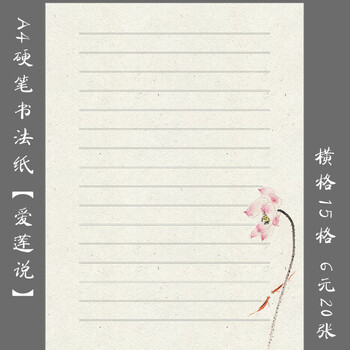 A4硬笔书法纸【爱莲说】
横格15格 6元20张